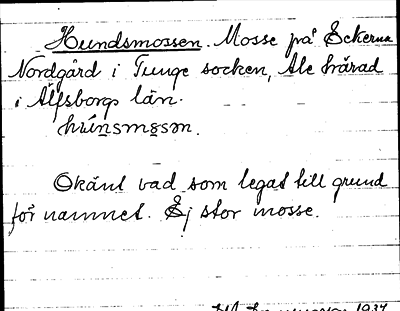 Hundsmossen. Mosse på Eckerna
Nordgård i Tunge socken, Ale härad
i Älfsborgs län.
húnsmɷsɷn.
Okänt vad som legat till grund
för namnet. Ej stor mosse.
1934